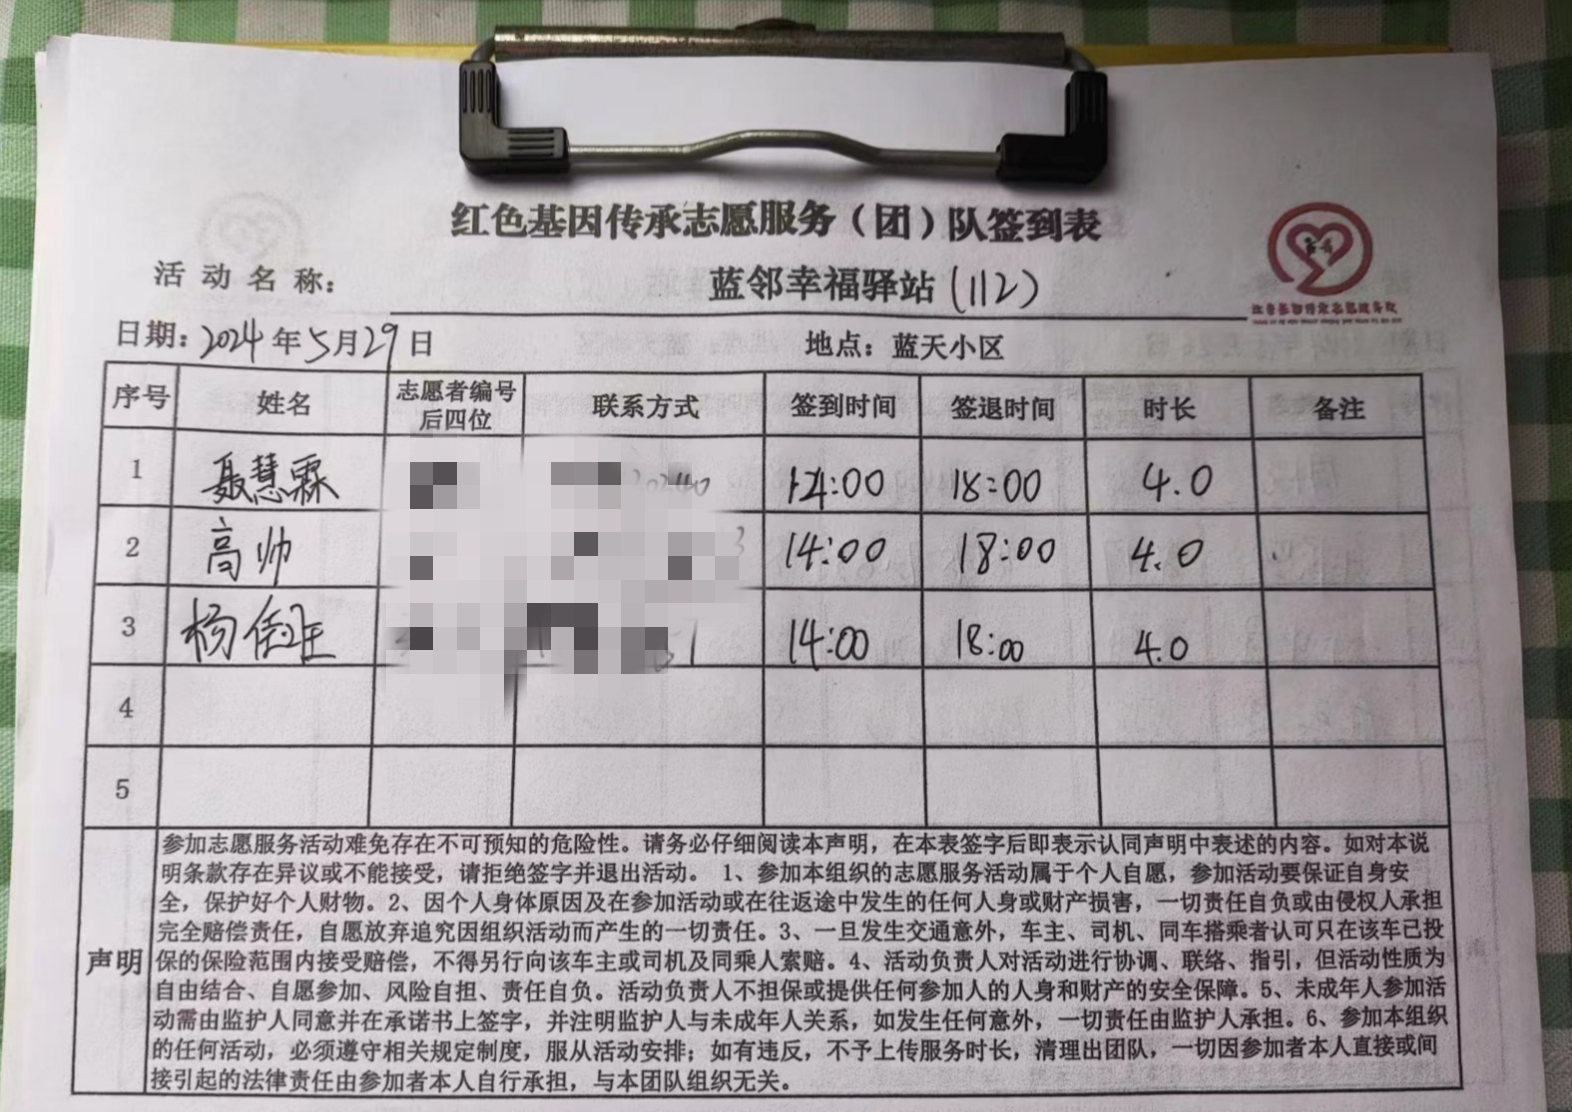 红色基因传承志愿服务（团）队签到表
活动名称： 蓝邻幸福驿站(112)
日期：2024年5月29日 地点：蓝天小区
序号 姓名 志愿者编号后四位 联系方式 签到时间 签退时间 时长 备注
1 聂慧霖 14:00 18:00 4.0
2 高帅 14:00 18:00 4.0
3 杨 14:00 18:00 4.0
4
5
声明
参加志愿服务活动难免存在不可预知的危险性。请务必仔细阅读本声明，在本表签字后即表示认同声明中表述的内容。如对本说
明条款存在异议或不能接受，请拒绝签字并退出活动。 1、参加本组织的志愿服务活动属于个人自愿，参加活动要保证自身安
全，保护好个人财物。2、因个人身体原因及在参加活动或在往返途中发生的任何人身或财产损害，一切责任自负或由侵权人承担
完全赔偿责任，自愿放弃追究因组织活动而产生的一切责任。3、一旦发生交通意外，车主、司机、同车搭乘者认可只在该车已投
保的保险范围内接受赔偿，不得另行向该车主或司机及同乘人索赔。4、活动负责人对活动进行协调、联络、指引，但活动性质为
自由结合、自愿参加、风险自担、责任自负。活动负责人不担保或提供任何参加人的人身和财产的安全保障。5、未成年人参加活
动需由监护人同意并在承诺书上签字，并注明监护人与未成年人关系，如发生任何意外，一切责任由监护人承担。6、参加本组织
的任何活动，必须遵守相关规定制度，服从活动安排；如有违反，不予上传服务时长，清理出团队，一切因参加者本人直接或间
接引起的法律责任由参加者本人自行承担，与本团队组织无关。